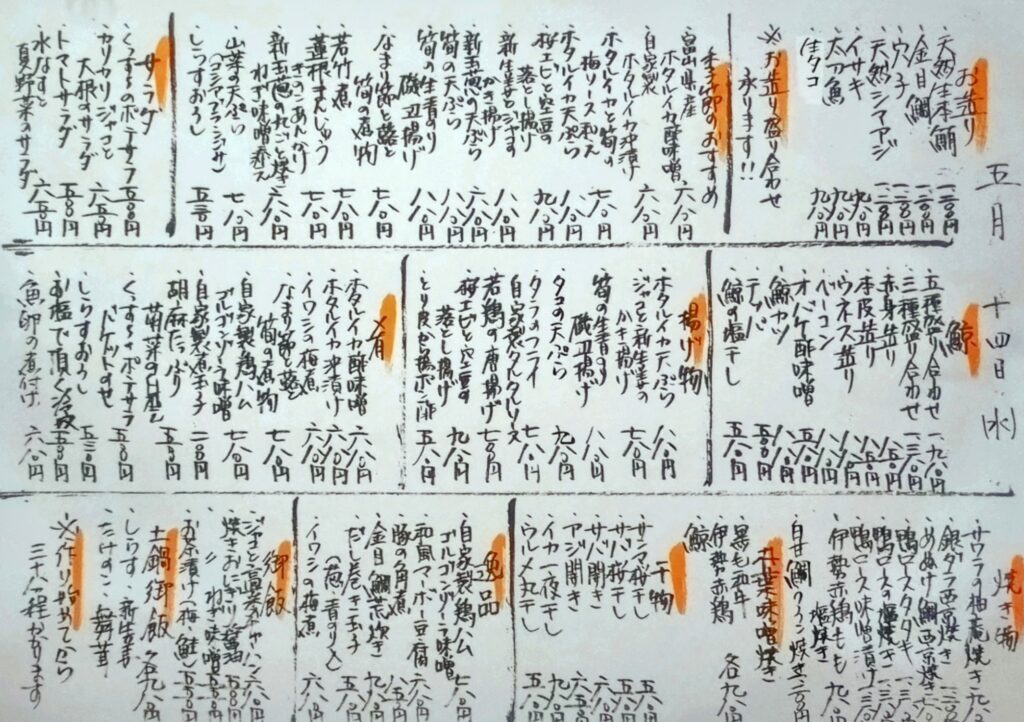 五月 十四日 (水)
お造り
天然生本鮪 一二〇〇円
金目鯛 一二〇〇円
穴子
天然シマアジ 一二〇〇円
イサキ 九八〇円
太刀魚 九八〇円
生タコ 九八〇円
※お造り盛り合わせ
承ります!!
季節のおすすめ
富山県産
ホタルイカ酢味噌 六八〇円
自家製
ホタルイカ沖漬け 六八〇円
ホタルイカと筍の
梅ソース和え 七八〇円
ホタルイカ天ぷら 八八〇円
桜エビと空豆の
落とし揚げ 九八〇円
新生姜とジャコの
かき揚げ 七八〇円
新玉葱の天ぷら 六八〇円
筍の天ぷら 八八〇円
筍の生青のり
磯辺揚げ 八八〇円
なまり節と蕗と
筍の煮物 七八〇円
若竹煮 七八〇円
蓮根まんじゅう
きのこあんかけ 七八〇円
新玉葱の丸ごと焼き
ねぎ味噌添え 六八〇円
山菜の天ぷら 七八〇円
しらすおろし 五三〇円
サラダ
くんたまのポテサラ 五八〇円
カリカリジャコと
大根のサラダ 六五〇円
トマトサラダ 五五〇円
水なすと
夏野菜のサラダ 六八〇円
鯨
五種盛り合わせ 一九八〇円
三種盛り合わせ 一三五〇円
赤身造り
本皮造り
ウネス造り
ベーコン
オバケ酢味噌
鯨カツ
テッパ
鯨の塩干し 五八〇円
揚げ物
ホタルイカ天ぷら 八八〇円
ジャコと新生姜の
かき揚げ 七八〇円
筍の生青のり
磯辺揚げ 八八〇円
タコの天ぷら 九八〇円
タラのフライ
自家製タルタルソース 七八〇円
若鶏の唐揚げ 七八〇円
桜エビと空豆の
落とし揚げ 九八〇円
とり皮から揚ポン酢 五八〇円
肴
ホタルイカ酢味噌 六八〇円
ホタルイカ沖漬け 六八〇円
イワシの梅煮 六八〇円
なまり節と蕗と
筍の煮物 七八〇円
自家製鶏ハム
ゴルゴンゾーラ味噌 七八〇円
自家製煮玉子
胡麻たっぷり
くんたまポテサラ
バケットのせ 五八〇円
しらすおろし 五三〇円
お塩で頂く冷奴 五五〇円
魚卵の煮付け 六八〇円
焼き物
サワラの柚庵焼 九八〇円
銀ダラ西京焼き
めぬけ鯛西京焼き
鴨ロースタタキ
鴨ロースの塩焼き
鴨ロース味噌漬け
伊勢赤鶏もも
塩焼き 九八〇円
千葉味噌焼き
黒毛和牛
伊勢赤鶏
鯨
各九八〇円
干物
サンマ桜干し
サバ桜干し
サバ開き
アジ開き
イカ一夜干し
ウルメ丸干し
逸品
自家製鶏ハム
ゴルゴンゾーラ味噌 七八〇円
和風マーボー豆腐
豚の角煮
金目鯛荒炊き 九八〇円
だし巻き玉子
(葱・青のり入)
イワシの梅煮 六八〇円
御飯
ジャコと高菜チャーハン 六八〇円
焼きおにぎり 醤油
〃 ねぎ味噌
お茶漬け(梅・鮭) 五五〇円
土鍋御飯 各九八〇円
しらす・新生姜
たけのこ・舞茸
※作り始めてから
三十分程かかります